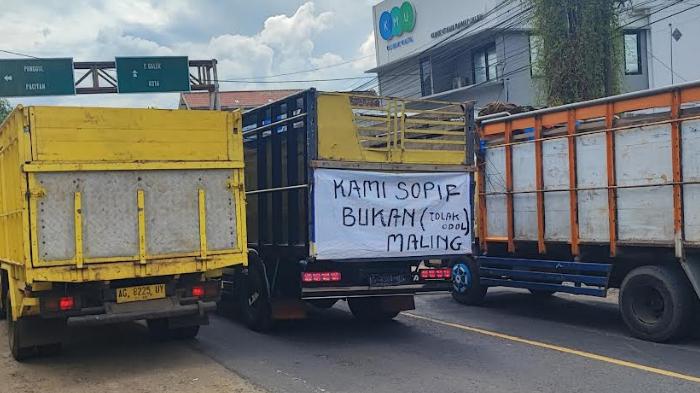 PONGGOL
PACITAN
T. GALEK
KOTA
KMU
KAMI SOPIF
BUKAN (TOLAK
ODOL)
MALING
AG 8225 UY